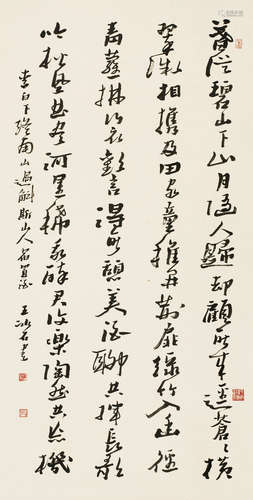 暮從碧山下山月隨人歸却顧所來逕蒼蒼橫
翠微相攜及田家童稚開荊扉綠竹入幽徑
青蘿拂行衣歡言得所憩美酒聊共揮長歌
吟松風曲盡河星稀我醉君復樂陶然共忘機
李白下終南山過斛斯山人宿置酒 王冰石書